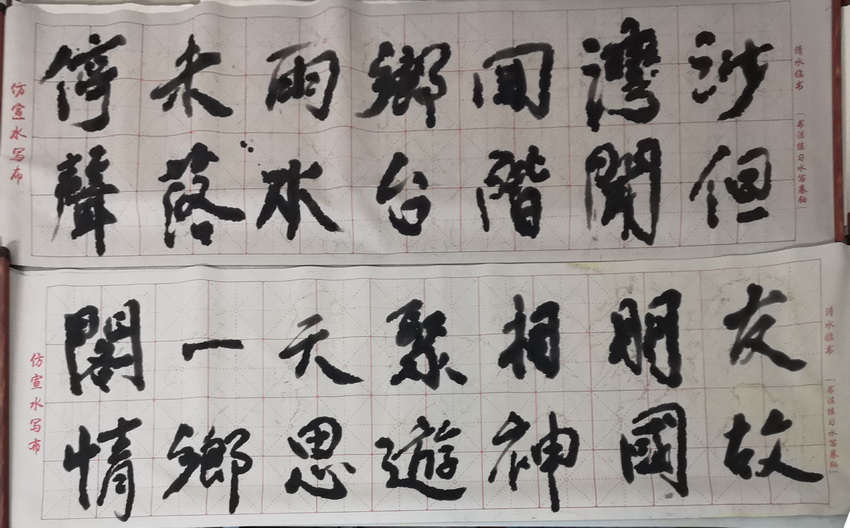 涉灣回鄉雨未停
但聞階台水落聲
清水临书
书法练习水写卷轴
仿宣水写布
友朋相聚天一閣
故國神遊思鄉情
清水临书
书法练习水写卷轴
仿宣水写布